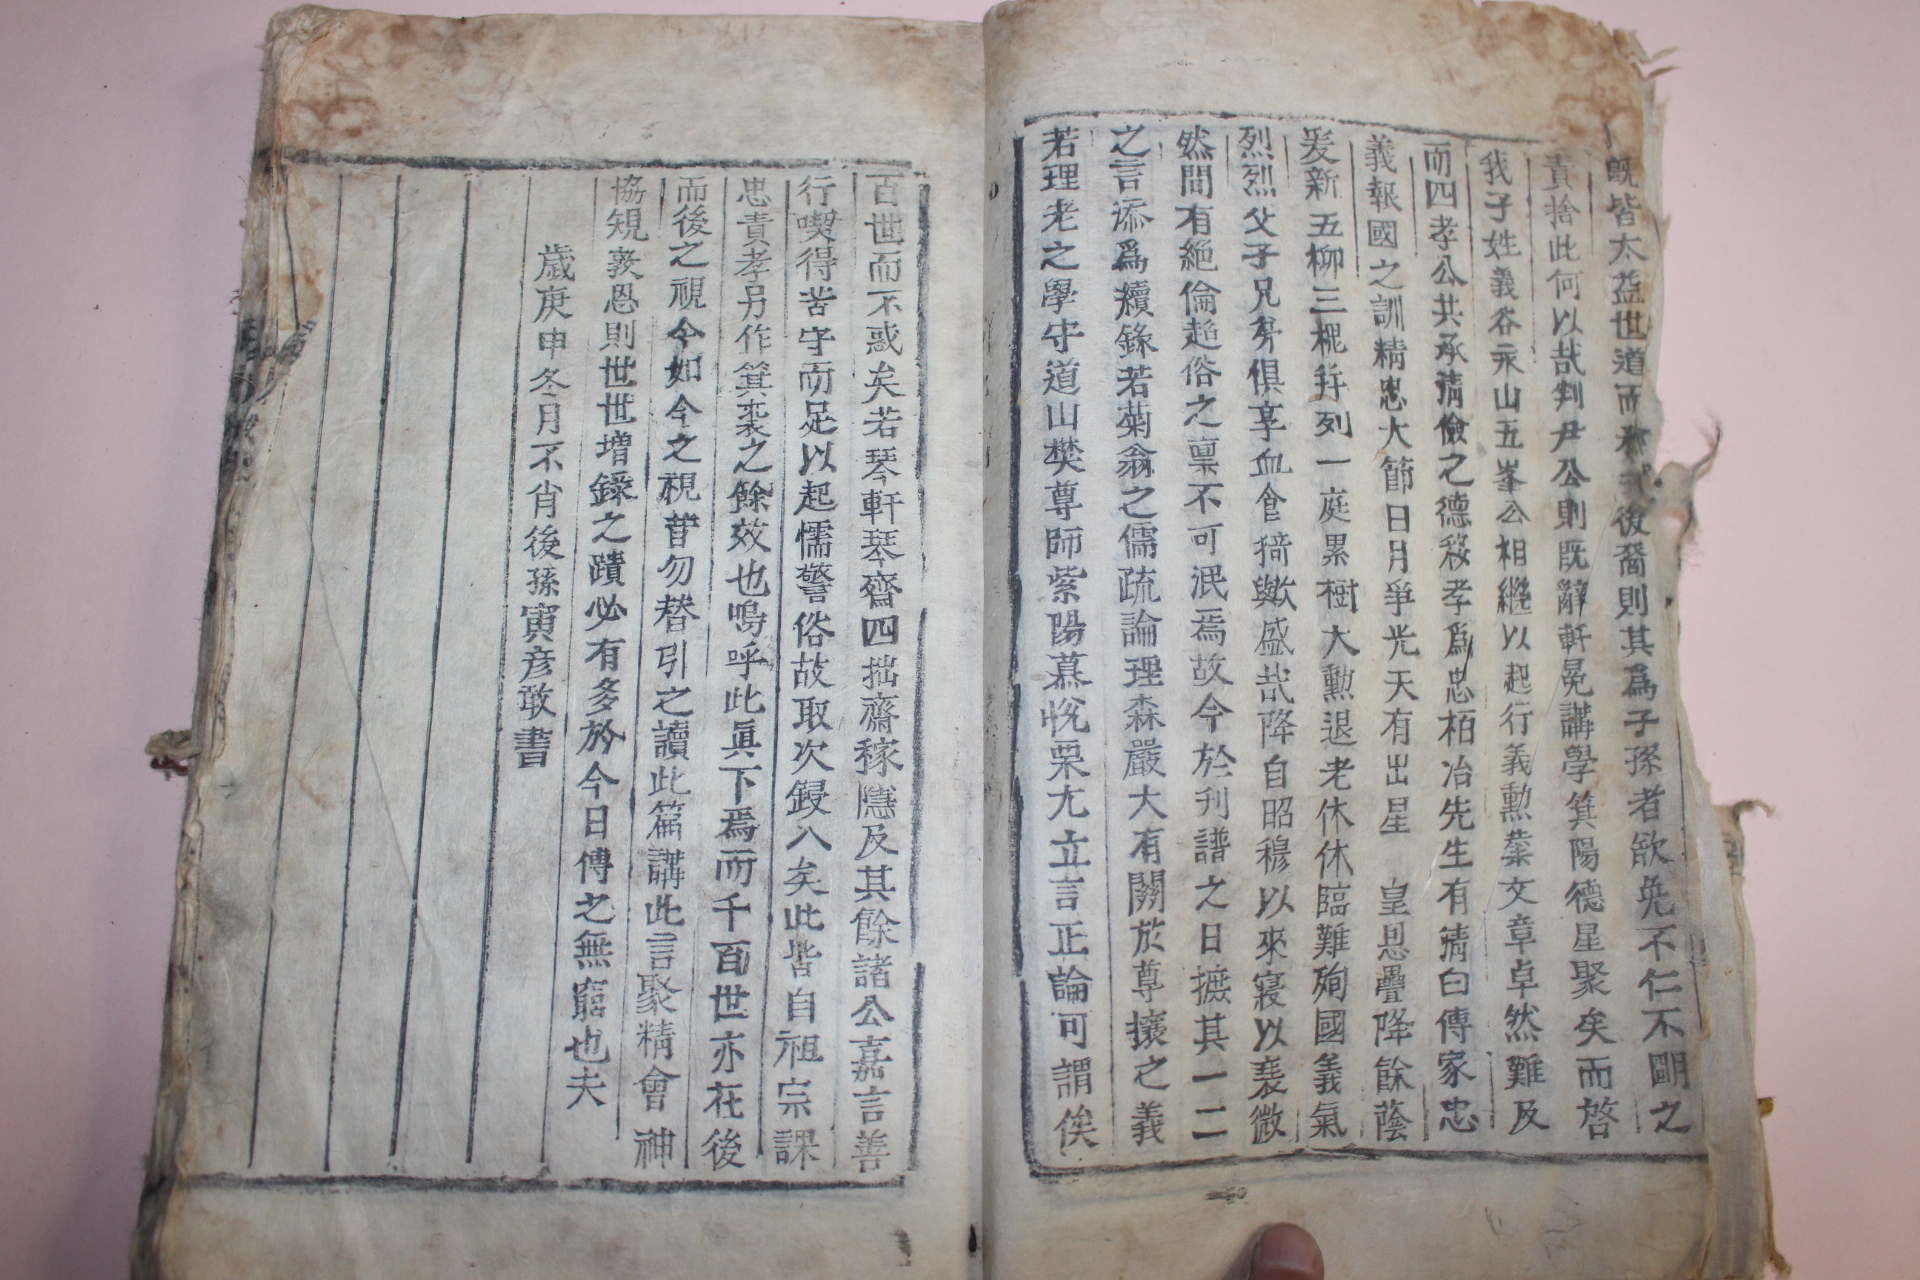 旣皆太益世道而後裔則其爲子孫者欲免不仁不明之
責捨此何以哉判尹公則旣辭軒冕講學箕陽德星聚矣而啓
我子姓義谷永山五峯公相繼以起行義勳業文章卓然難及
而四孝公共承淸儉之德移孝爲忠栢冶先生有淸白傳家忠
義報國之訓精忠大節日月爭光天有出星 皇恩疊降餘蔭
爰新五柳三槐幷列一庭累樹大勳退老休休臨難殉國義氣
烈烈父子兄弟俱享血食猗歟盛哉降自昭穆以來寢以衰微
然間有絶倫超俗之稟不可泯焉故今於刊譜之日摭其一二
之言添爲續錄若菊翁之儒疏論理森嚴大有關於尊攘之義
若理老之學守道山樊尊師紫陽慕悅栗尤立言正論可謂俟
百世而不惑矣若琴軒琴齋四拙齋稼隱及其餘諸公嘉言善
行喫得苦守而足以起懦警俗故取次鋟入矣此皆自祖宗課
忠責孝另作箕裘之餘效也嗚呼此眞下焉而千百世亦在後
而後之視今如今之視昔勿替引之讀此篇講此言聚精會神
協規敦恩則世世增錄之蹟必有多於今日傳之無窮也夫
歲庚申冬月不肖後孫寅彦敢書